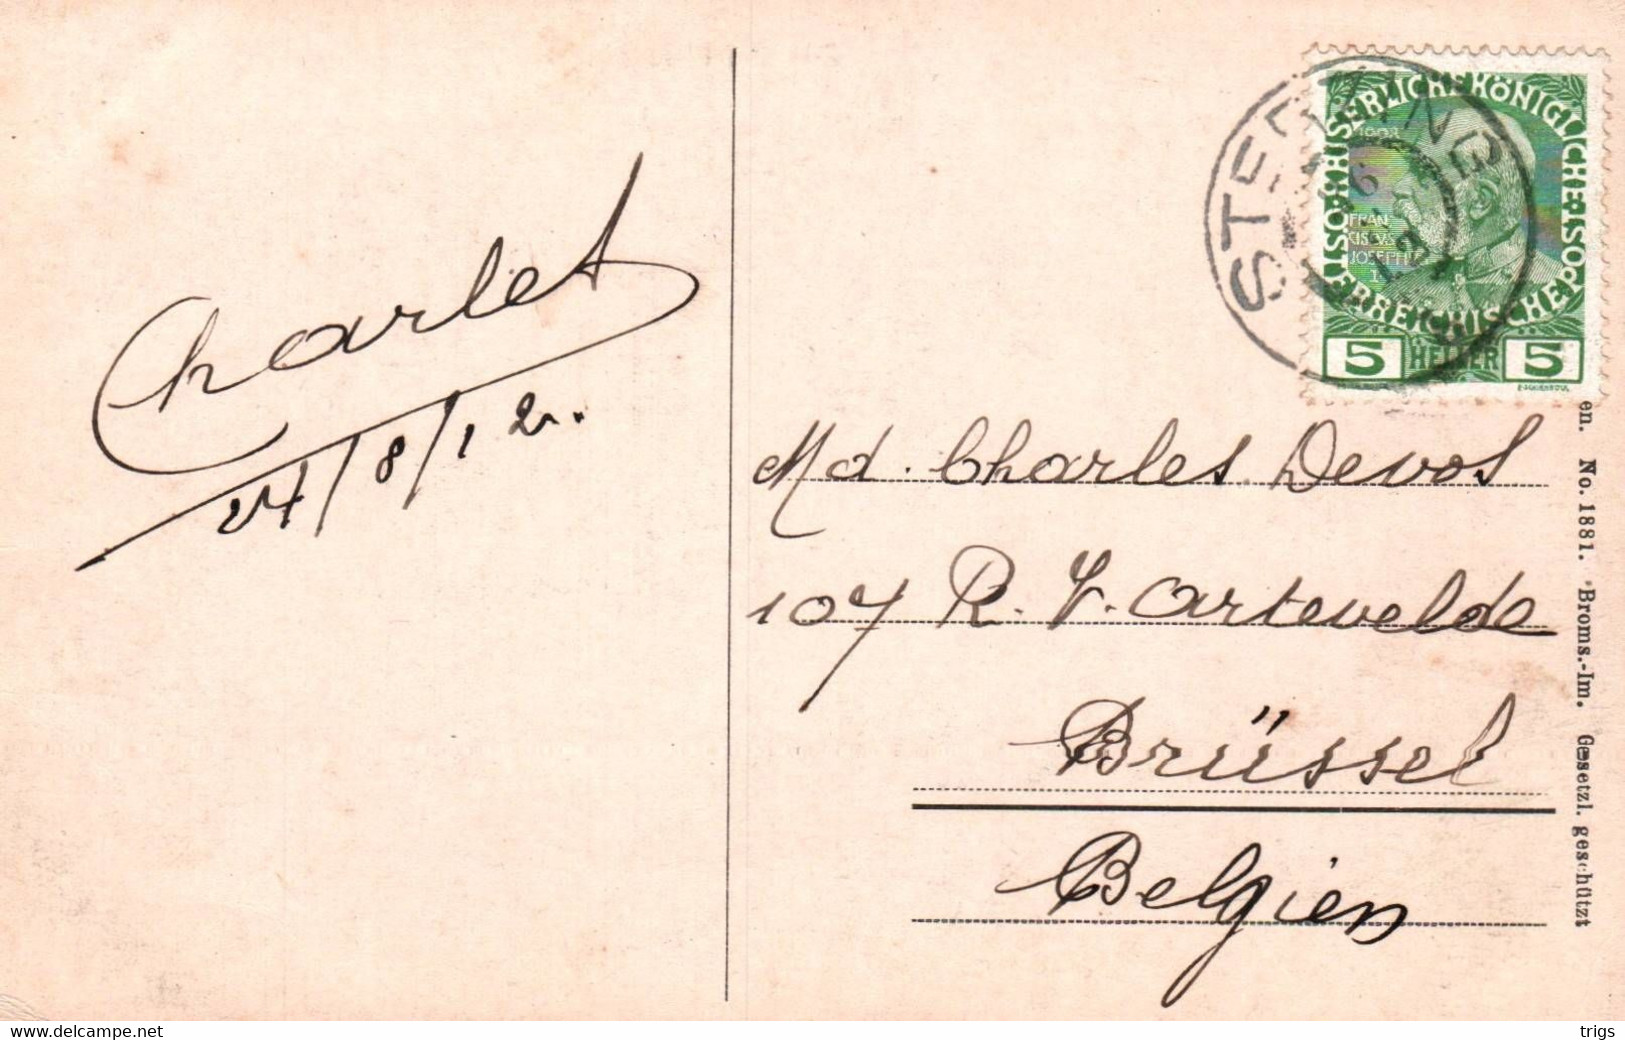 Charles
24/8/12.
STERZING
KAISERLICHE KÖNIGLICHE
ÖSTERREICHISCHE POST
1908
FRAN
CISCVS
JOSEPH
I
5 HELLER 5
Md. Charles Devos
107 R. V. Artevelde
Brüssel
Belgien
en. No. 1881. Broms.-Im. Gesetzl. geschützt
www.delcampe.net
trigs